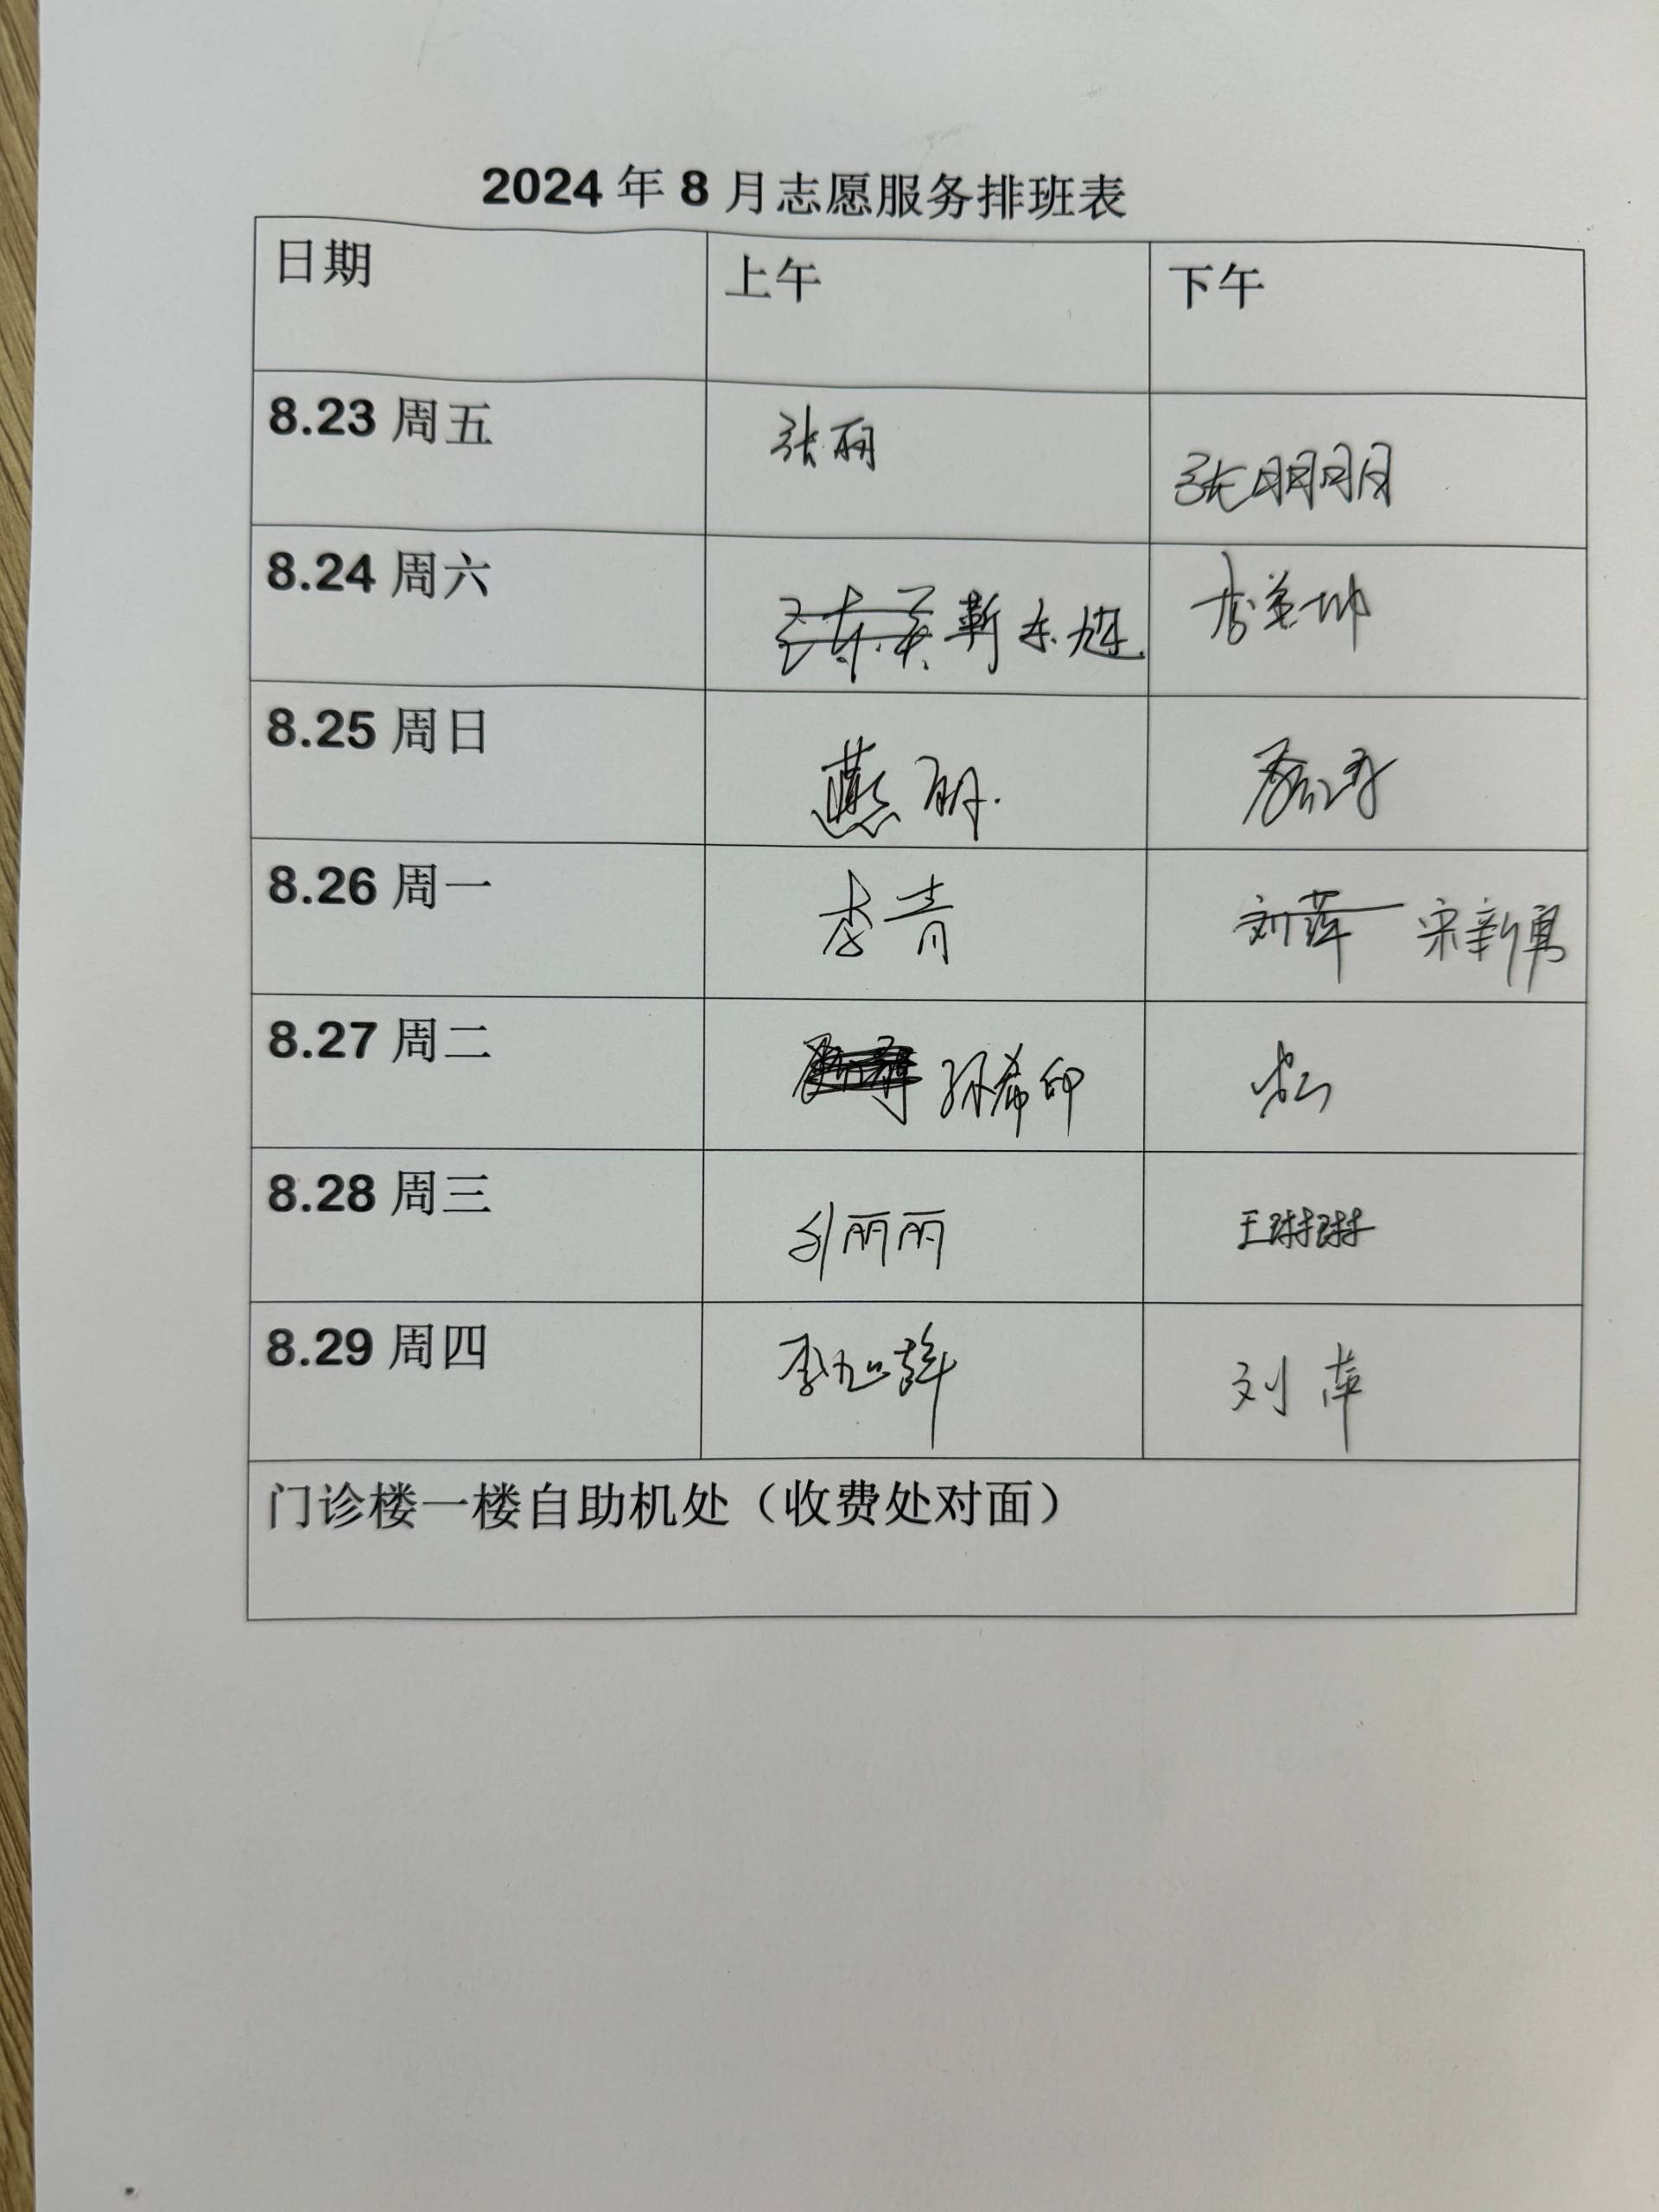 2024年8月志愿服务排班表
日期 上午 下午
8.23 周五 张丽 张朋朋
8.24 周六 靳东旭
8.25 周日 燕丽
8.26 周一 李青 刘萍 宋新勇
8.27 周二 孙希印
8.28 周三 刘丽丽 王琳琳
8.29 周四 刘萍
门诊楼一楼自助机处（收费处对面）